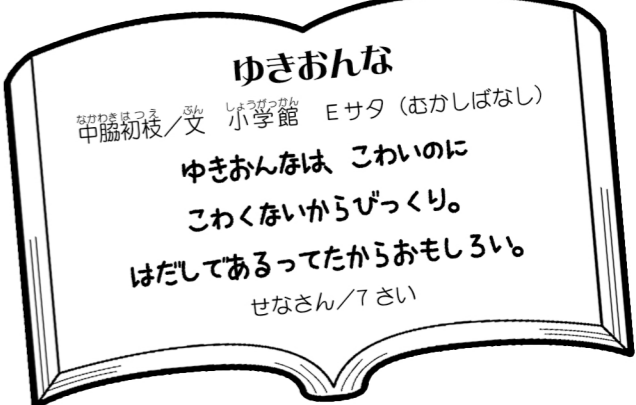 ゆきおんな
中脇初枝／文 小学館 Eサタ（むかしばなし）
ゆきおんなは、こわいのに
こわくないからびっくり。
はだしであるってたからおもしろい。
せなさん／7さい